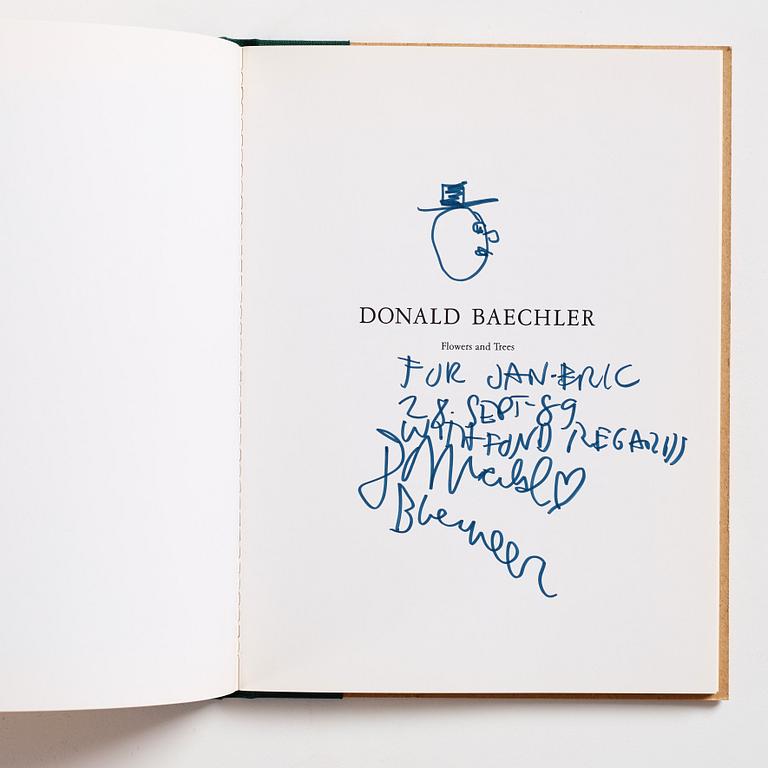 DONALD BAECHLER
Flowers and Trees
FOR JAN-ERIC
28. SEPT-89
WITH FOND REGARDS
Donald
Baechler